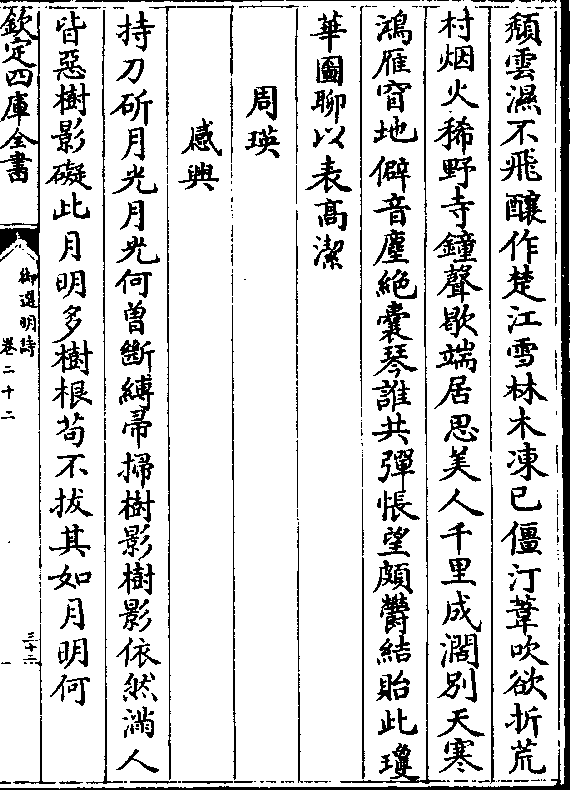 頽雲濕不飛釀作楚江雪林木凍已僵汀葦吹欲折荒
村烟火稀野寺鐘聲歇端居思美人千里成濶别天寒
鴻雁窅地僻音塵絶囊琴誰共彈悵望頗鬱結貽此瓊
華圖聊以表髙潔
周瑛
感興
持刀斫月光月光何曾斷縛帚掃樹影樹影依然滿人
皆惡樹影礙此月明多樹根苟不拔其如月明何
欽定四庫全書
御選明詩
卷二十二
三十三